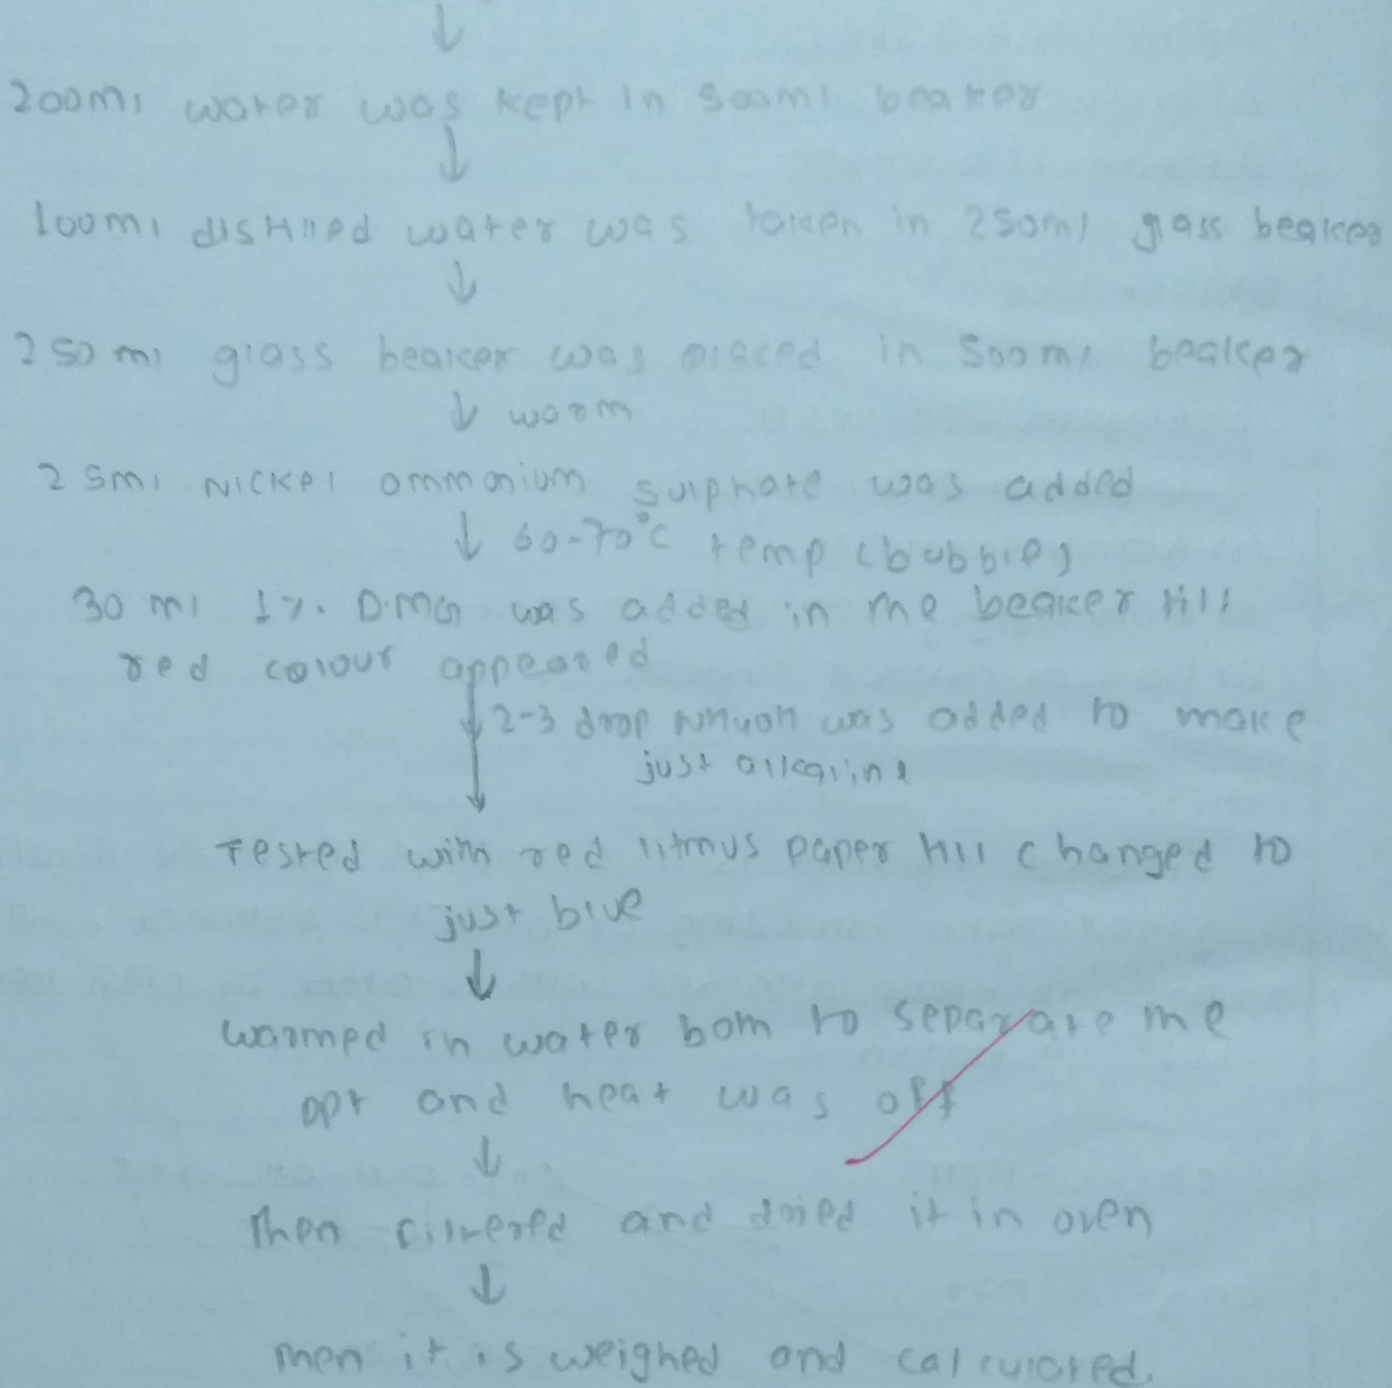 ↓
200ml water was kept in 500ml beaker
↓
100ml distilled water was taken in 250ml glass beaker
↓
250 ml glass beaker was placed in 500ml beaker
↓ warm
25ml Nickel ammonium sulphate was added
↓ 60-70°C temp (bubble)
30 ml 1% DMG was added in the beaker till
red colour appeared
↓ 2-3 drop NH4OH was added to make
just alkaline
Tested with red litmus paper till changed to
just blue
↓
warmed in water bath to separate the
ppt and heat was off
↓
Then filtered and dried it in oven
↓
then it is weighed and calculated.